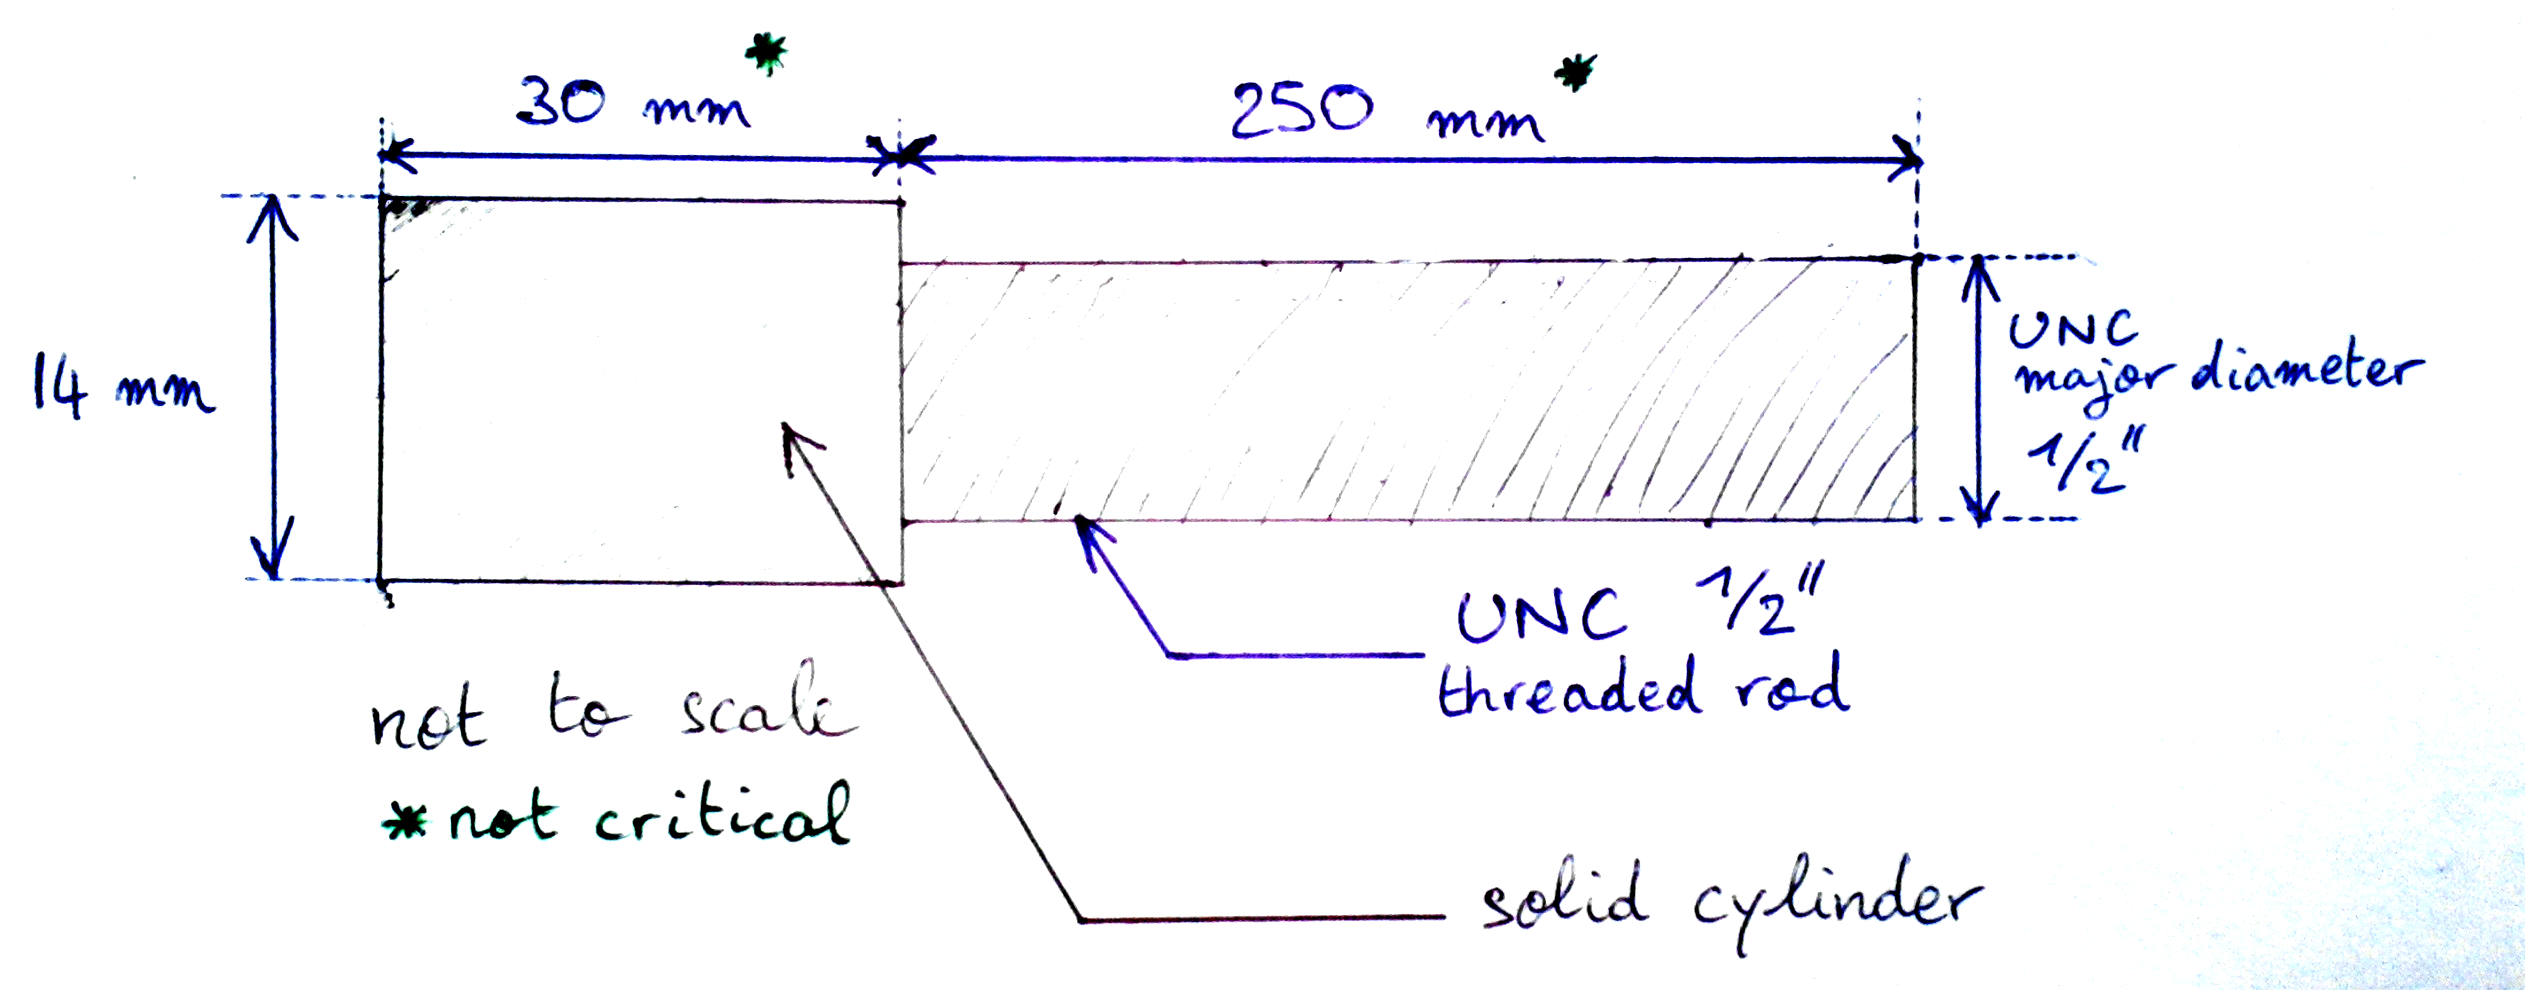 30 mm*
250 mm*
14 mm
UNC
major diameter
1/2"
UNC 1/2"
threaded rod
not to scale
*not critical
solid cylinder